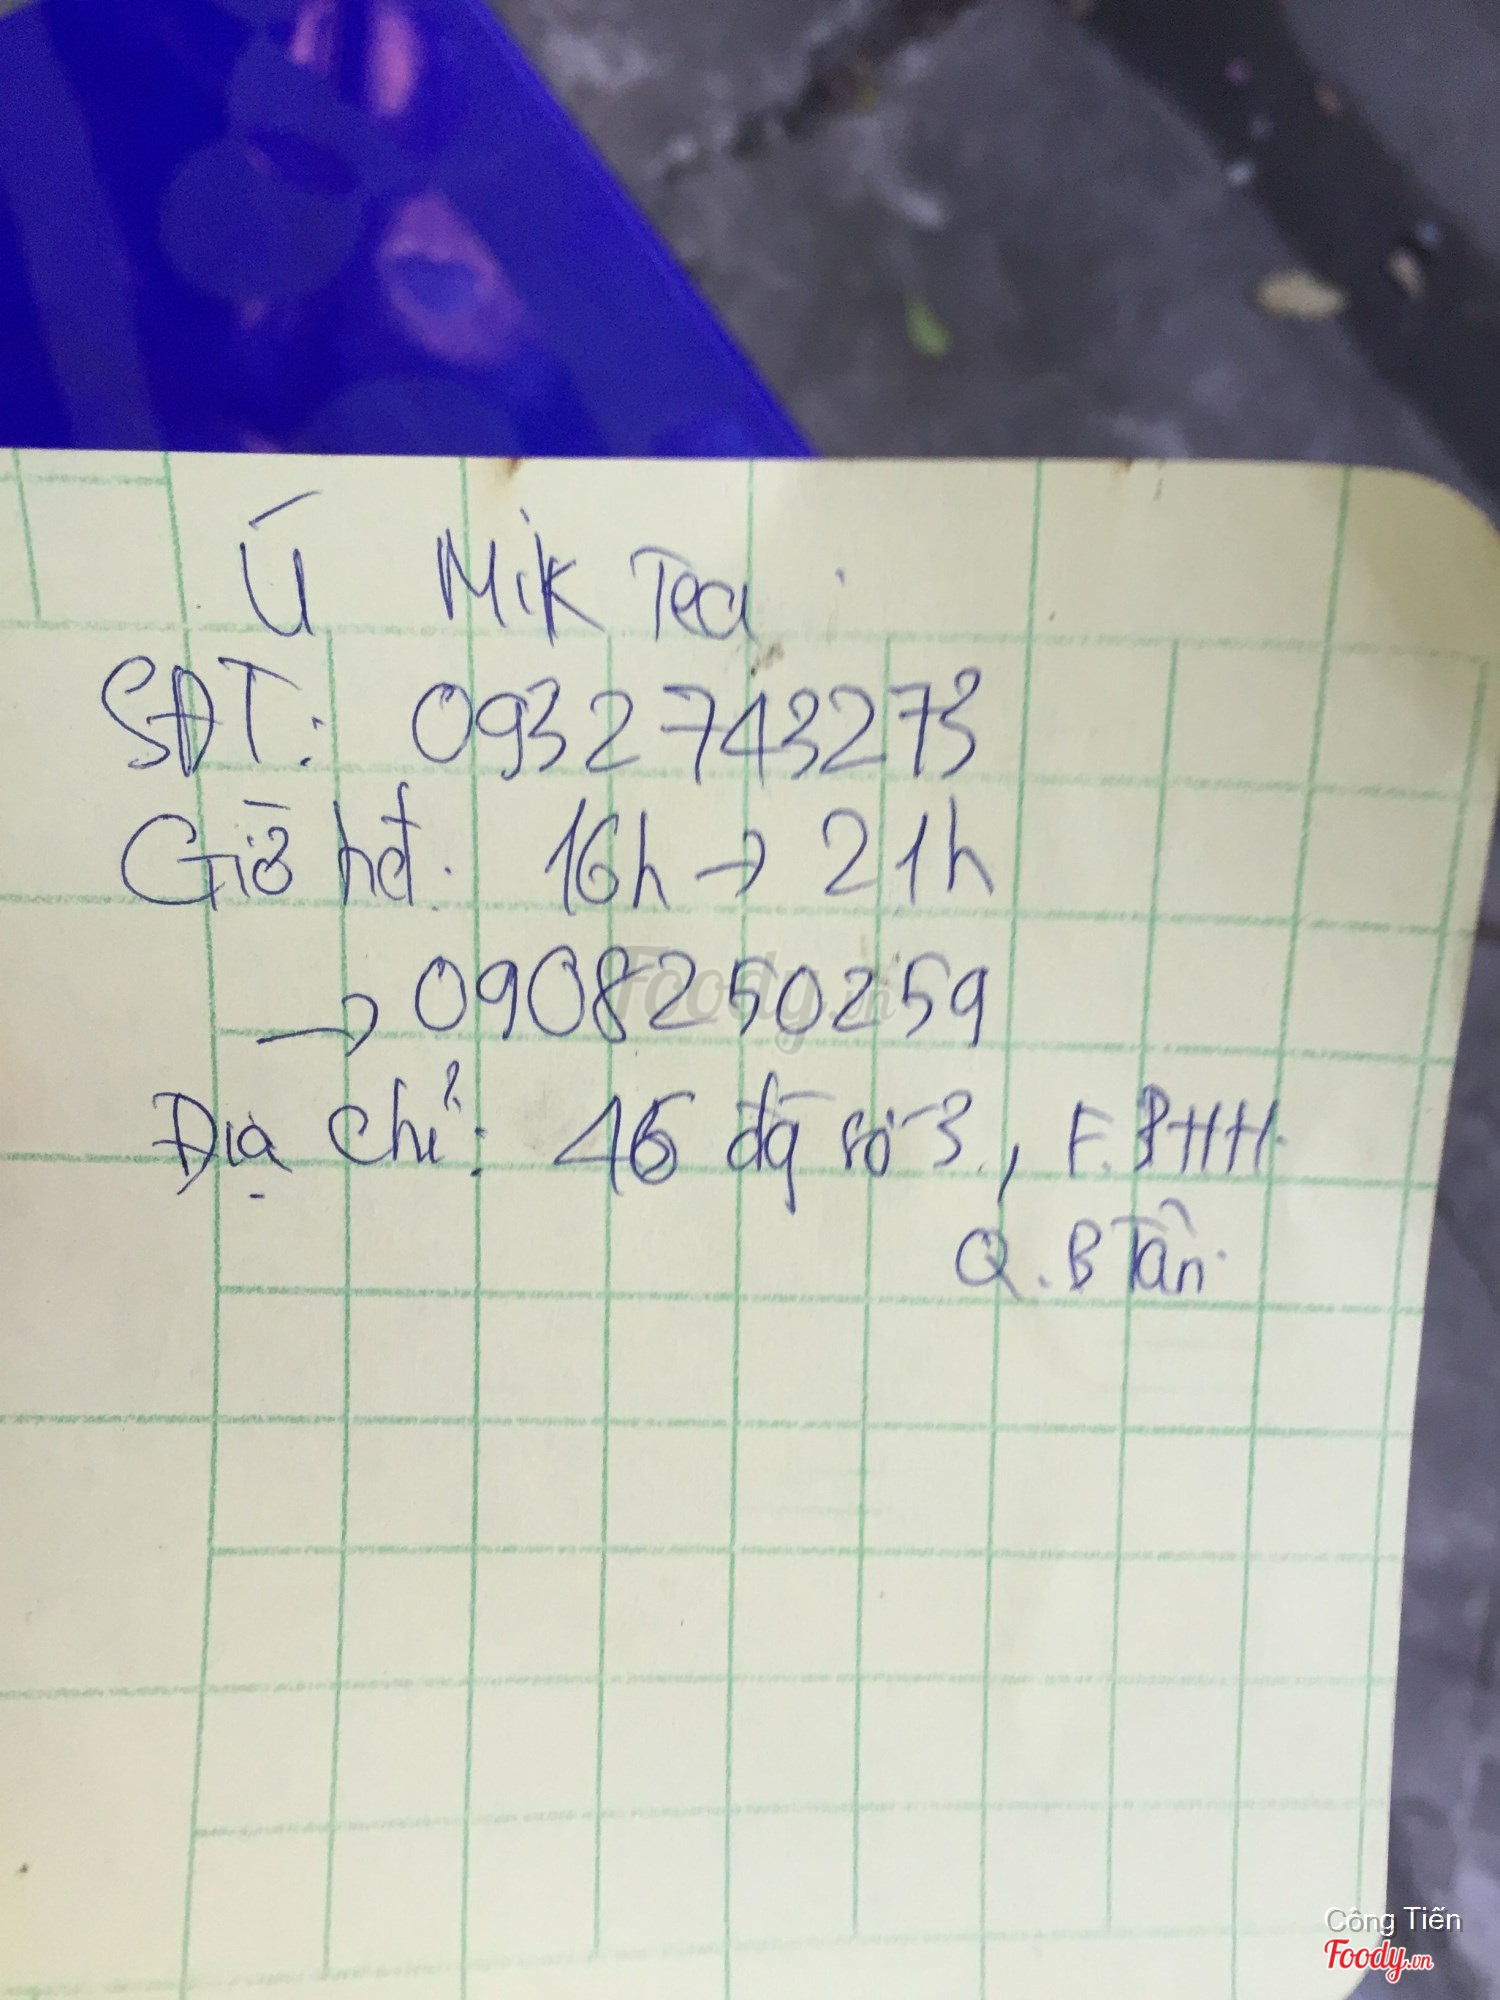 Ú Mik Tea
SĐT: 0932743273
Giờ hđ: 16h → 21h
→ 0908250259
Địa chỉ: 46 đg số 3, F. BHH.
Q. B Tân.
Foody.vn
Công Tiến
Foody.vn